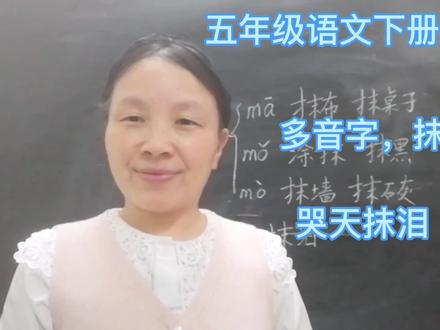 五年级语文下册
mā 抹布 抹桌子
多音字，抹
mǒ 涂抹 抹黑
mò 抹墙 抹石灰
哭天抹泪